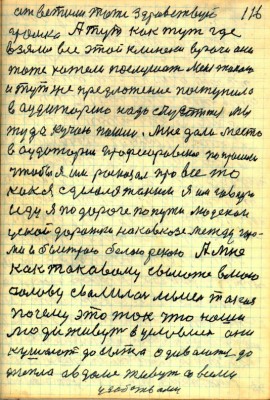 ответили тоже здравствуй 116
А тут как тут где
взялись все этой клиники врачи они
тоже хотели послушать меня
и тут же предложение поступило
в аудиторию надо мы
туда кучею пошли, мне дали место
в аудитории профессора попросили
чтобы я им рассказал про все то
какая сделалась я им говорю
иду я по дороге по пути людской
узкой дорожки на кавказе между гор
ми и быстрою белою рекою А мне
как таковому свыше в мою
голову свалилась мысль такая
почему это так что наши
люди живут в условиях они
кушают до сыта одеваются до
тепла в доме живут со всеми
удобствами